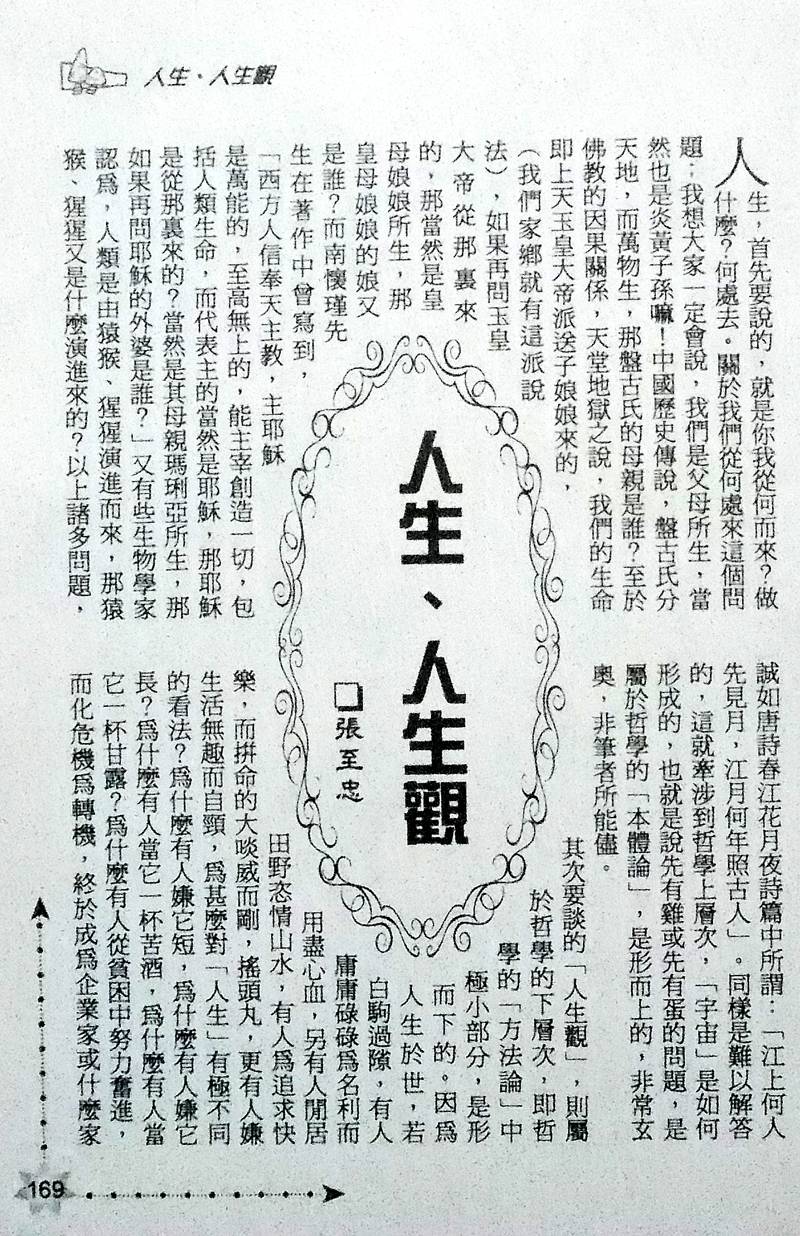 人生·人生觀
人生，首先要說的，就是你我從何而來？做
什麼？何處去。關於我們從何處來這個問
題：我想大家一定會說，我們是父母所生，當
然也是炎黃子孫嘛！中國歷史傳說，盤古氏分
天地，而萬物生，那盤古氏的母親是誰？至於
佛教的因果關係，天堂地獄之說，我們的生命
即上天玉皇大帝派送子娘娘來的，
（我們家鄉就有這派說
法），如果再問玉皇
大帝從那裏來
的，那當然是皇
母娘娘所生，那
皇母娘娘的娘又
是誰？而南懷瑾先
生在著作中曾寫到，
「西方人信奉天主教，主耶穌
是萬能的，至高無上的，能主宰創造一切，包
括人類生命，而代表主的當然是耶穌，那耶穌
是從那裏來的？當然是其母親瑪琍亞所生，那
如果再問耶穌的外婆是誰？」又有些生物學家
認爲，人類是由猿猴、猩猩演進而來，那猿
猴、猩猩又是什麼演進來的？以上諸多問題，
人生、人生觀
□張至忠
誠如唐詩春江花月夜詩篇中所謂：「江上何人
先見月，江月何年照古人」。同樣是難以解答
的，這就牽涉到哲學上層次，「宇宙」是如何
形成的，也就是說先有雞或先有蛋的問題，是
屬於哲學的「本體論」，是形而上的，非常玄
奧，非筆者所能儘。
其次要談的「人生觀」，則屬
於哲學的下層次，即哲
學的「方法論」中
極小部分，是形
而下的。因爲
人生於世，若
白駒過隙，有人
庸庸碌碌爲名利而
用盡心血，另有人閒居
田野恣情山水，有人爲追求快
樂，而拼命的大啖威而剛，搖頭丸，更有人嫌
生活無趣而自頸，爲甚麼對「人生」有極不同
的看法？爲什麼有人嫌它短，爲什麼有人嫌它
長？爲什麼有人當它一杯苦酒，爲什麼有人當
它一杯甘露？爲什麼有人從貧困中努力奮進，
而化危機爲轉機，終於成爲企業家或什麼家
169